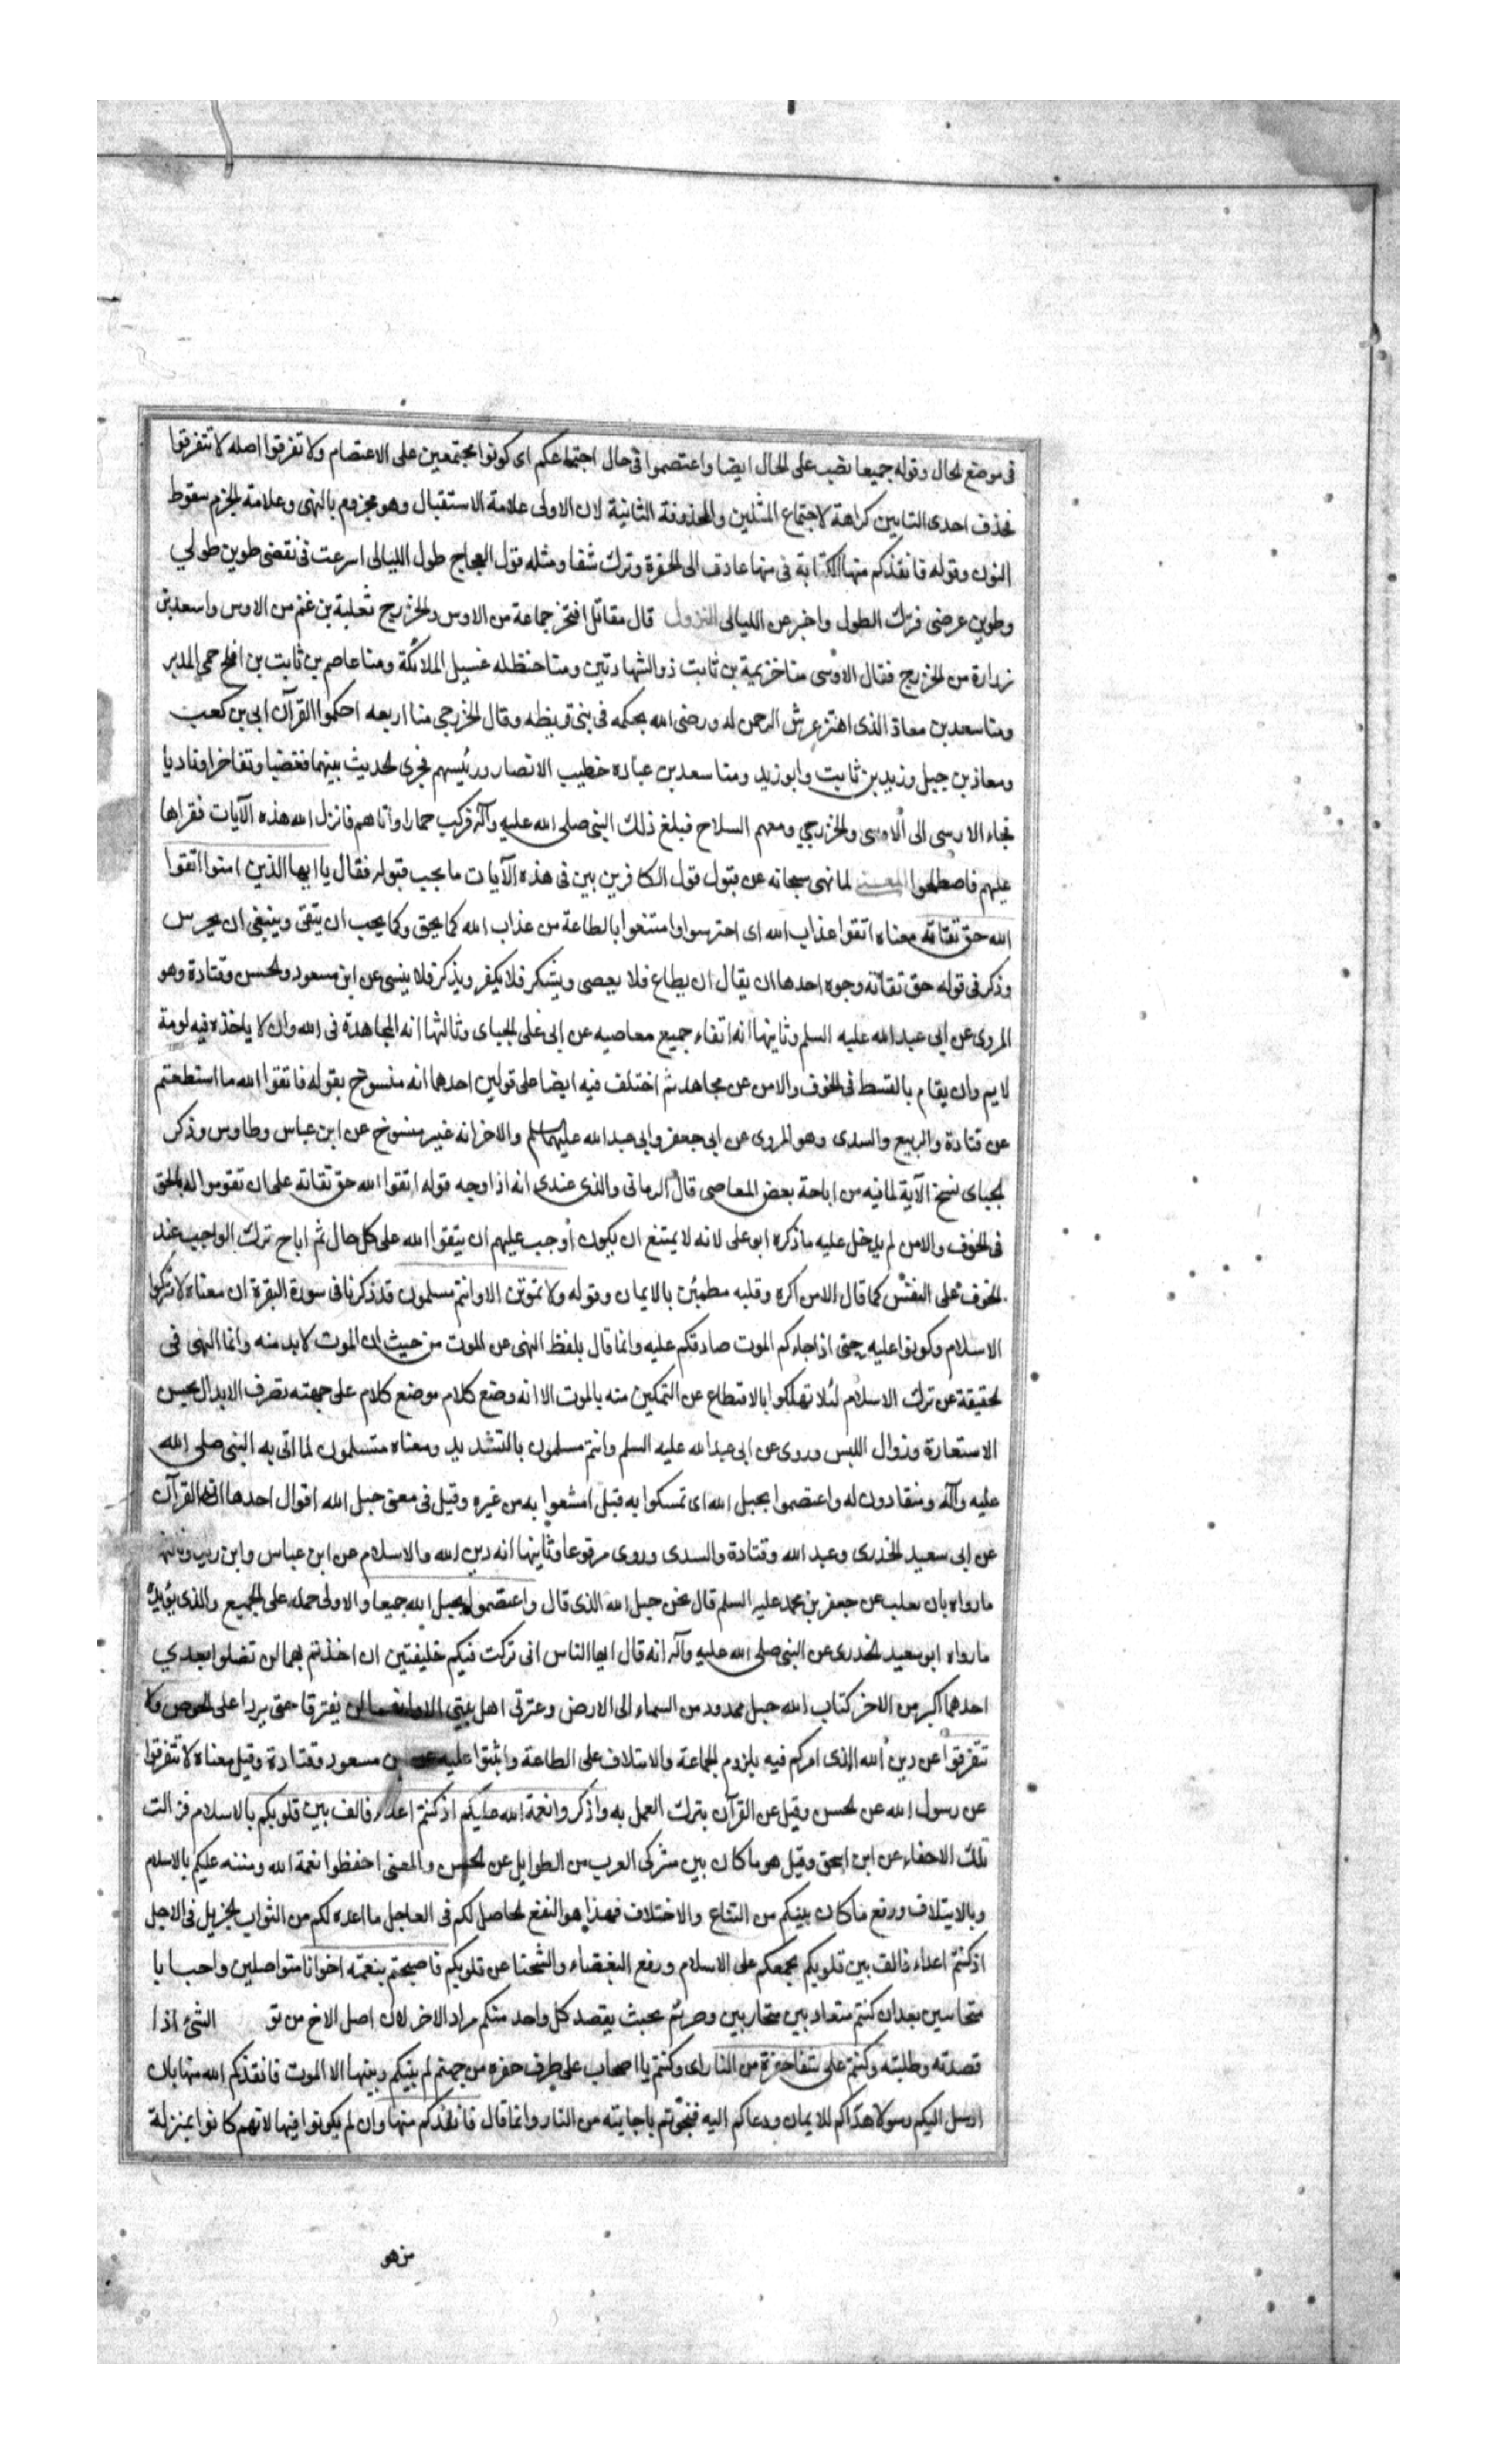 فى موضع الحال وقوله جميعا نصب على الحال ايضا واعتصموا فى حال اجتماعكم اى كونوا مجتمعين على الاعتصام ولا تفرقوا اصله لا تتفرقوا
فحذف احدى التايين كراهة لاجتماع المثلين والمحذوفة الثانية لان الاولى علامة الاستقبال وهو مجزوم بالنهى وعلامة الجزم سقوط
النون وقوله فانقذكم منها الكناية فى منها عادت الى الحفرة وترك شفا ومثله قول العجاج طول الليالى اسرعت فى نقضى طوين طولي
وطوين عرضى فترك الطول واخبر عن الليالى النزول قال مقاتل افتخر جماعة من الاوس والخزرج ثعلبة بن غنم من الاوس واسعد بن
زرارة من الخزرج فقال الاوسى منا خزيمة بن ثابت ذو الشهادتين ومنا حنظله غسيل الملائكة ومنا عاصم بن ثابت بن افلح حمى الدبر
ومنا سعد بن معاذ الذى اهتز عرش الرحمن له ورضى الله بحكمه فى بنى قريظه وقال الخزرجى منا اربعه احكموا القرآن ابى بن كعب
ومعاذ بن جبل وزيد بن ثابت وابو زيد ومنا سعد بن عباده خطيب الانصار ورئيسهم فجرى الحديث بينهما فغضبا وتفاخرا وناديا
فجاء الاوسى الى الاوسى والخزرجي ومعهم السلاح فبلغ ذلك النبى صلى الله عليه وآله فركب حمارا واتاهم فانزل الله هذه الآيات فقراها
عليهم فاصطلحوا المعنى لما نهى سبحانه عن قبول قول الكافرين بين فى هذه الآيات ما يجب قبوله فقال يا ايها الذين امنوا اتقوا
الله حق تقاته معناه اتقوا عذاب الله اى احترسوا وامتنعوا بالطاعة من عذاب الله كما يحق وكما يجب ان يتقى وينبغى ان يحرس
وذكر فى قوله حق تقاته وجوه احدها ان يقال ان يطاع فلا يعصى ويشكر فلا يكفر ويذكر فلا ينسى عن ابن مسعود والحسن وقتادة وهو
المروى عن ابى عبد الله عليه السلم وثانيها انه اتقاء جميع معاصيه عن ابى على الجباى وثالثها انه المجاهدة فى الله وان لا ياخذه فيه لومة
لايم وان يقام بالقسط فى الخوف والامن عن مجاهد ثم اختلف فيه ايضا على قولين احدهما انه منسوخ بقوله فاتقوا الله ما استطعتم
عن قتادة والربيع والسدى وهو المروى عن ابى جعفر وابى عبد الله عليهما السلم والاخر انه غير منسوخ عن ابن عباس وطاوس وذكر
الجباى نسخ الآية لما فيه من اباحة بعض المعاصى قال الرمانى والذى عندى انه اذا وجه قوله اتقوا الله حق تقاته على ان تقوموا له بالحق
فى الخوف والامن لم يدخل عليه ما ذكره ابو على لانه لا يمتنع ان يكون اوجب عليهم ان يتقوا الله على كل حال ثم اباح ترك الواجب عند
الخوف على النفس كما قال الا من اكره وقلبه مطمئن بالايمان وقوله ولا تموتن الا وانتم مسلمون قد ذكرنا فى سورة البقرة ان معناه لا تتركوا
الاسلام وكونوا عليه حتى اذا جاءكم الموت صادفكم عليه وانما قال بلفظ النهى عن الموت من حيث ان الموت لابد منه وانما النهى فى
الحقيقة عن ترك الاسلام لئلا تهلكوا بالاقتطاع عن التمكين منه بالموت الا انه وضع كلام موضع كلام على جهته تصرف الابدال بحسن
الاستعارة وزوال اللبس وروى عن ابى عبد الله عليه السلم وانتم مسلمون بالتشديد ومعناه مستسلمون لما اتى به النبى صلى الله
عليه وآله ومنقادون له واعتصموا بحبل الله اى تمسكوا به قيل امتنعوا به من غيره وقيل فى معنى حبل الله اقوال احدها انه القرآن
عن ابى سعيد الخدرى وعبد الله وقتادة والسدى وروى مرفوعا وثانيها انه دين الله والاسلام عن ابن عباس وابن زيد وثالثها
ما رواه ابان بن تغلب عن جعفر بن محمد عليه السلم قال نحن حبل الله الذى قال واعتصموا بحبل الله جميعا والاولى حمله على الجميع والذى يؤيده
ما رواه ابو سعيد الخدرى عن النبى صلى الله عليه وآله انه قال ايها الناس انى تركت فيكم خليفتين ان اخذتم بهما لن تضلوا بعدي
احدهما اكبر من الاخر كتاب الله حبل ممدود من السماء الى الارض وعترتى اهل بيتى الا وانهما لن يفترقا حتى يردا على الحوض ولا
تتفرقوا عن دين الله الذى امركم فيه بلزوم الجماعة والايتلاف على الطاعة واثبتوا عليه عن ابن مسعود وقتادة وقيل معناه لا تتفرقوا
عن رسول الله عن الحسن وقيل عن القرآن بترك العمل به واذكروا نعمة الله عليكم اذ كنتم اعداء فالف بين قلوبكم بالاسلام فزالت
تلك الاحقاد عن ابن اسحق وقيل هو ما كان بين مشركى العرب من الطوايل عن الحسن والمعنى احفظوا نعمة الله ومننه عليكم بالاسلام
وبالايتلاف ورفع ما كان بينكم من التنازع والاختلاف فهذا هو النفع الحاصل لكم فى العاجل ما اعده لكم من الثواب الجزيل فى الاجل
اذ كنتم اعداء فالف بين قلوبكم بجمعكم على الاسلام ورفع البغضاء والشحنا عن قلوبكم فاصبحتم بنعمته اخوانا متواصلين واحبابا
متحابين بعد ان كنتم متعاديين متحاربين وصرتم بحيث يقصد كل واحد منكم مراد الاخر لان اصل الاخ من تو الشئ اذا
قصدته وطلبته وكنتم على شفا حفرة من النار اى وكنتم يا اصحاب على طرف حفره من جهنم لم يبنيكم وبينها الا الموت فانقذكم الله منها بان
ارسل اليكم رسولا هداكم للايمان ودعاكم اليه فنجوتم باجابته من النار وانما قال فانقذكم منها وان لم يكونوا فيها لانهم كانوا بمنزلة
من هو